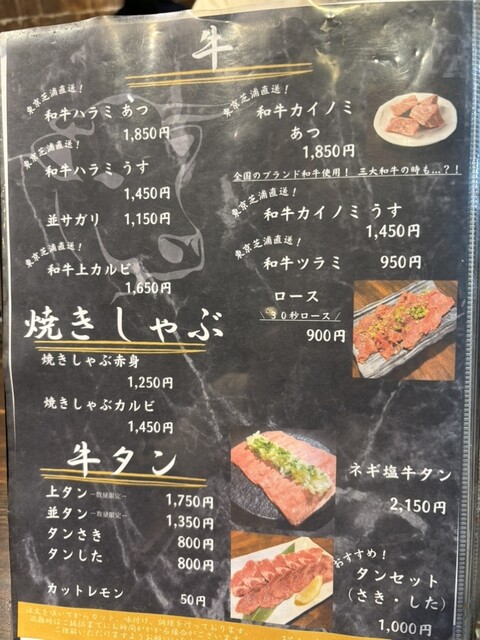 牛
東京芝浦直送！
和牛ハラミ あつ
1,850円
東京芝浦直送！
和牛ハラミ うす
1,450円
並サガリ 1,150円
東京芝浦直送！
和牛上カルビ
1,650円
東京芝浦直送！
和牛カイノミ
あつ
1,850円
全国のブランド和牛使用！ 三大和牛の時も…？！
東京芝浦直送！
和牛カイノミ うす
1,450円
東京芝浦直送！
和牛ツラミ 950円
ロース
\ 30秒ロース /
900円
焼きしゃぶ
焼きしゃぶ赤身
1,250円
焼きしゃぶカルビ
1,450円
牛タン
上タン ー数量限定ー 1,750円
並タン ー数量限定ー 1,350円
タンさき 800円
タンした 800円
カットレモン 50円
ネギ塩牛タン
2,150円
おすすめ！
タンセット
(さき・した)
1,000円
注文を頂いてからカット、味付け、調理を行っております。